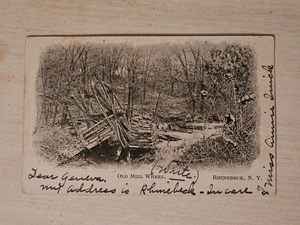 OLD MILL WHEEL.
RHINEBECK, N. Y.
(Write.)
Dear Geneva.
my address is Rhinebeck - In care
of Miss Annie Quick